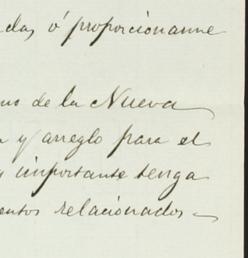 das, ó proporcionarme
no de la Nueva
y arreglo para el
y importante tenga
entos relacionados